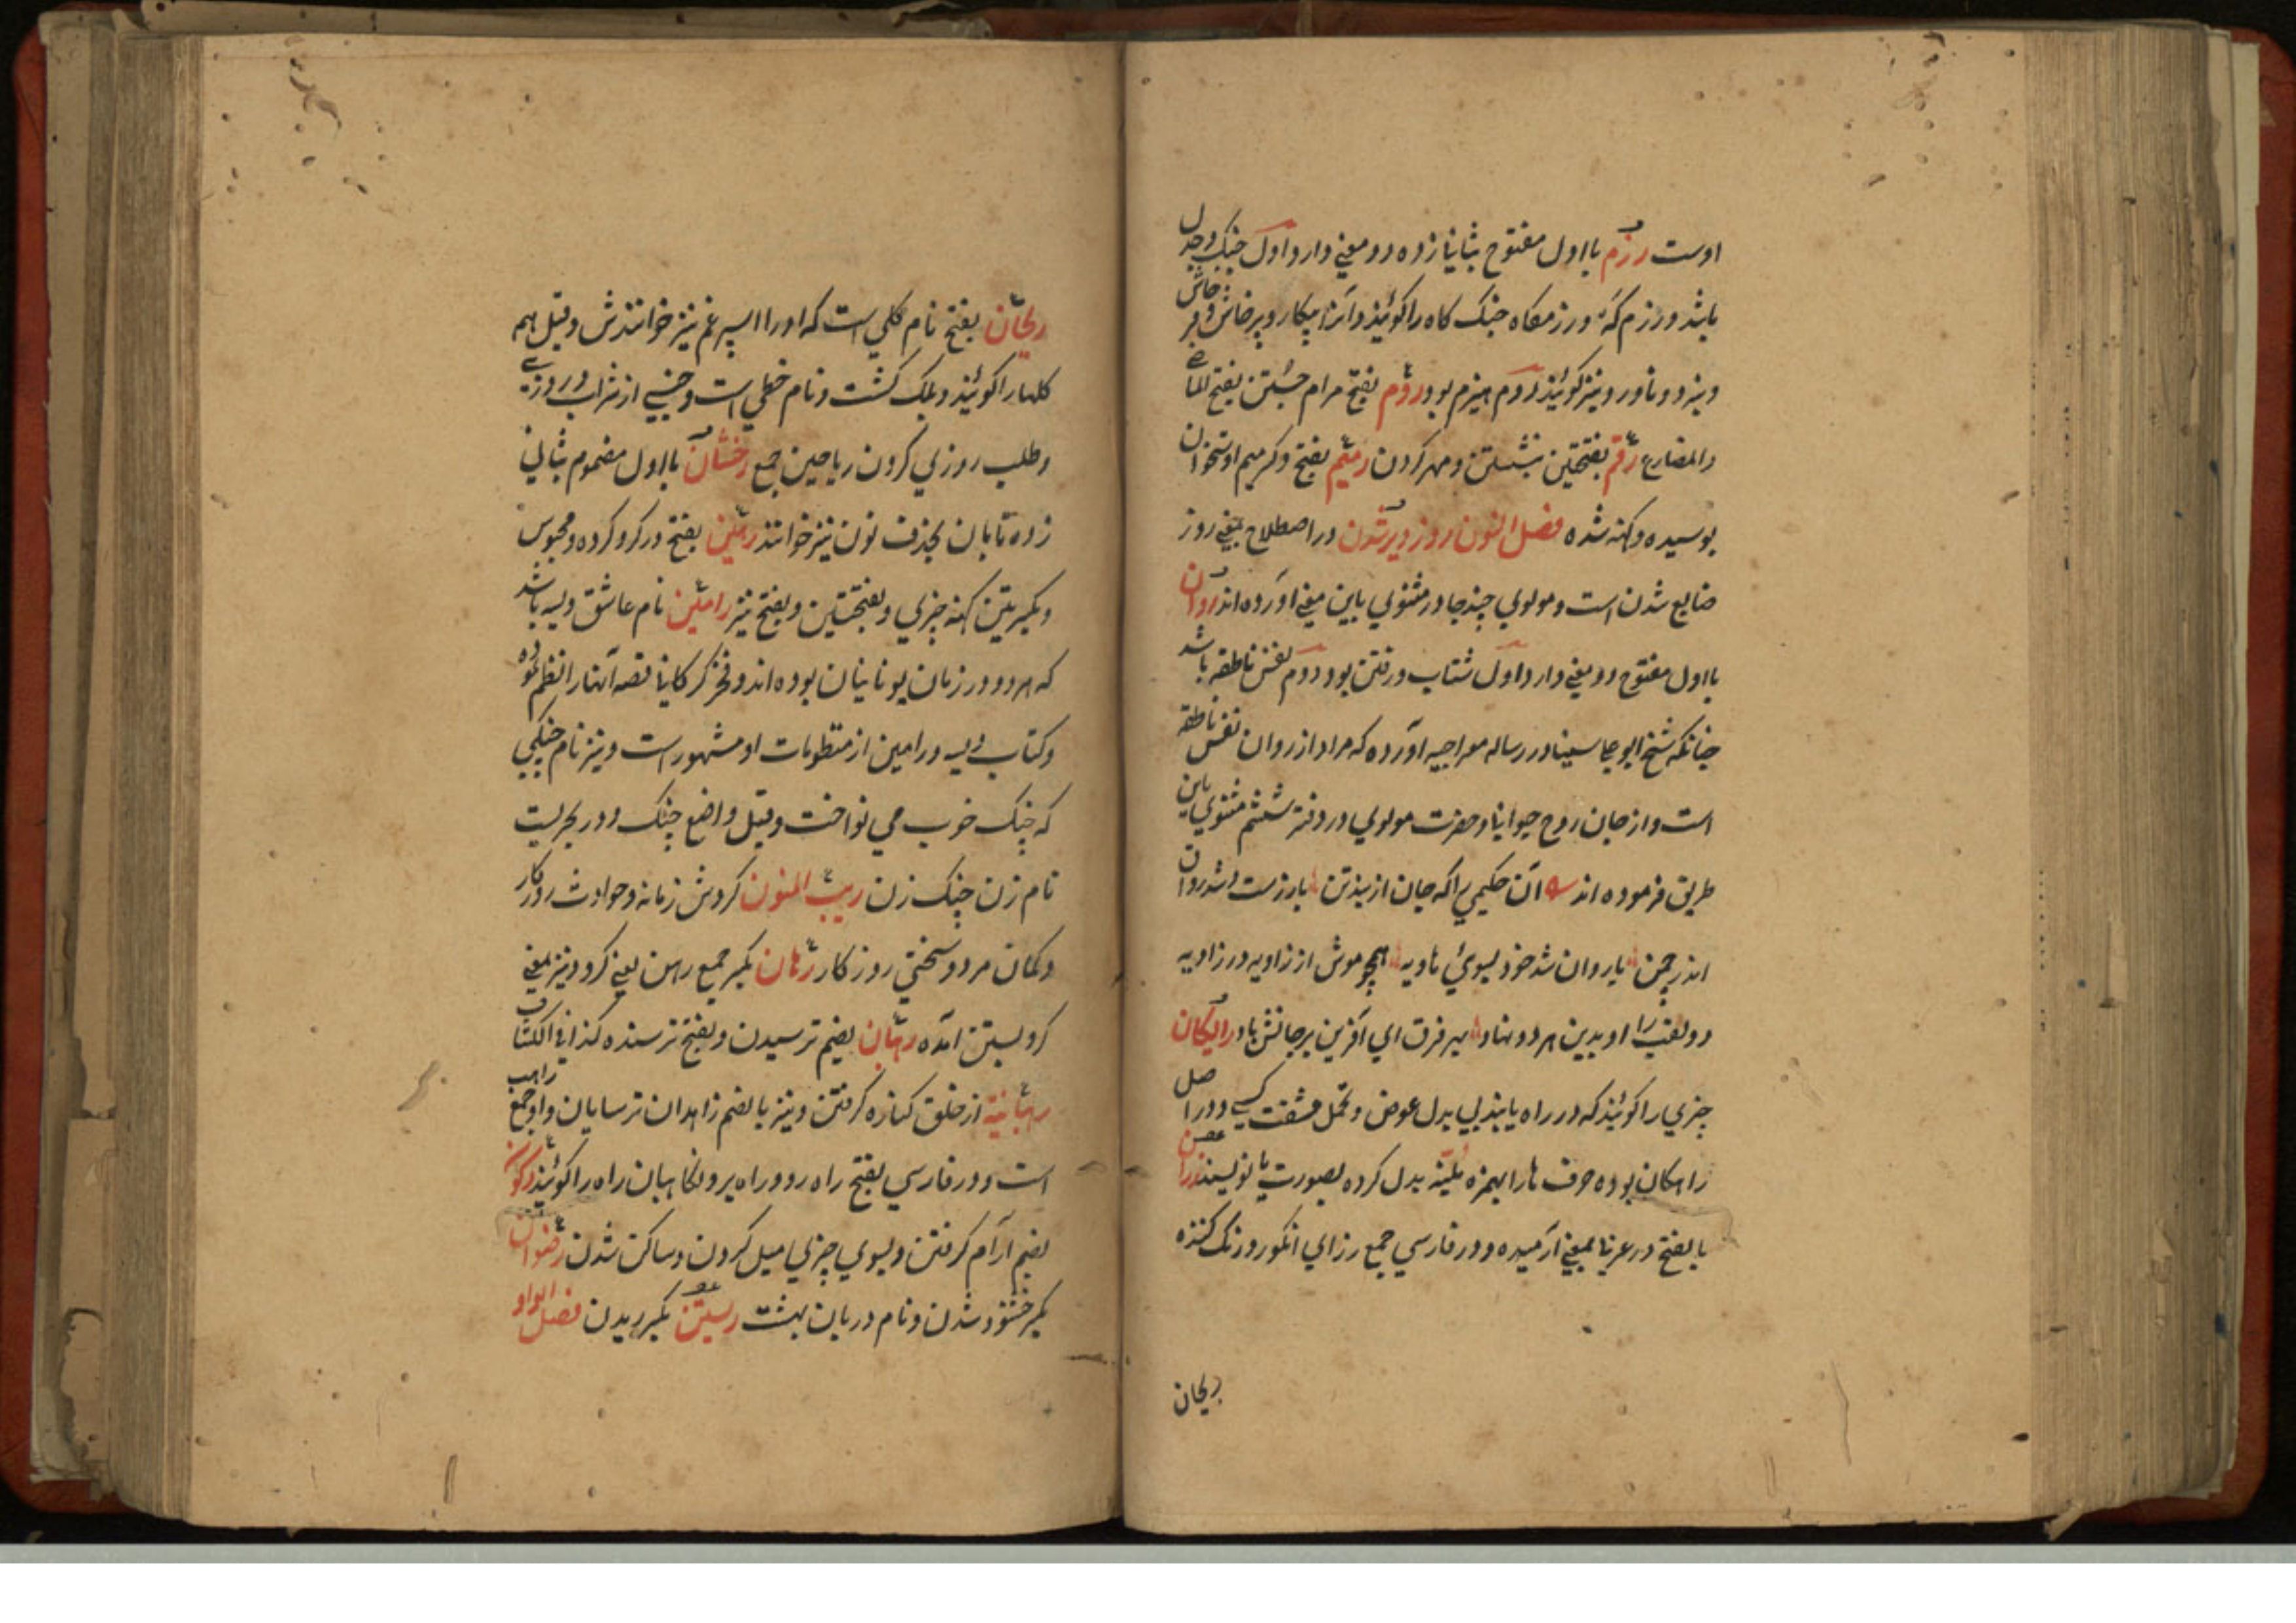 اوست رزم بااول مفتوح بثانی زده دو معنی دارد اول جنک وجدل
باشد ورزم که ورزمکاه جنک کاه راکویند وآنرا پیکار وپرخاش و
ونبرد وناورد ونیز کویند دوم هیزم بود روم بفتح مرام جستن بفتح الماضی
والمضارع رقم بفتحتین نبشتن ومهر کردن رمیم بفتح وکسر میم اوستخوان
بوسیده وکهنه شده فصل النون روز دیر شدن در اصطلاح بمعنی روز
ضایع شدن است ومولوی چند جا در مثنوی باین معنی آورده اند روان
بااول مفتوح دو معنی دارد اول شتاب ورفتن بود دوم نفس ناطقه باشد
چنانکه شیخ ابو علی سینا در رساله معراجیه آورده که مراد از روان نفس ناطقه
است واز جان روح حیوانی وحضرت مولوی در دفتر ششم مثنوی باین
طریق فرموده اند آن حکیمی را که جان از بند تن باز رست وشد روان
اندر چمن یا روان شد خود بسوی هاویه همچو موش از زاویه در زاویه
دو لقب را او بدین هر دو نهاد بهر فرق ای آفرین بر جانش باد رایکان
چیزی راکویند که در راه یابند بی بدل عوض وتحمل مشقت کسی ودر اصل
راهکان بوده حرف ها را بهمزه ملینه بدل کرده بصورت یا نویسند
بالفتح در عربی بمعنی آرمیده ودر فارسی جمع رز ای انکور ورنک کننده
ریحان
ریحان بفتح نام کلی است که اورا اسپرغم نیز خوانندش وقیل همه
کلها راکویند وبلک کشت ونام خطی است وجنسی از شراب وروزی
وطلب روزی کردن ریاحین جمع رخشان بااول مضموم بثانی
زده تابان بحذف نون نیز خوانند رهین بفتح در کرو کرده ومحبوس
وبکسرتین کهنه چیزی وبفتحتین وبفتح نیز رامین نام عاشق ویسه باشد
که هر دو در زمان یونانیان بوده اند وفخر کرکانی قصه آنها را نظم نموده
وکتاب ویسه ورامین از منظومات او مشهور است ونیز نام چنکیی
که چنک خوب می نواخت وقیل واضع چنک ودر بحریست
نام زن چنک زن ریب المنون کردش زمانه وحوادث روزکار
وکمان مرد وسختی روزکار رهان بکسر جمع رهن یعنی کرو ونیز بمعنی
کرو بستن آمده رهبان بضم ترسیدن وبفتح ترسنده کذا فی الکشاف
رهبانیة از خلق کناره کرفتن ونیز بالضم زاهدان ترسایان واو جمع راهب
است ودر فارسی بفتح راه رو وراه بر ونکاهبان راه راکویند رکون
بضم آرام کرفتن وبسوی چیزی میل کردن وساکن شدن رضوان
بکسر خشنود شدن ونام دربان بهشت ریستن بکسر ریدن فصل الواو